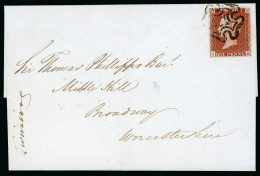 Sir Thomas Phillipps Bart.
Middle Hill
Broadway
Worcestershire
ONE PENNY